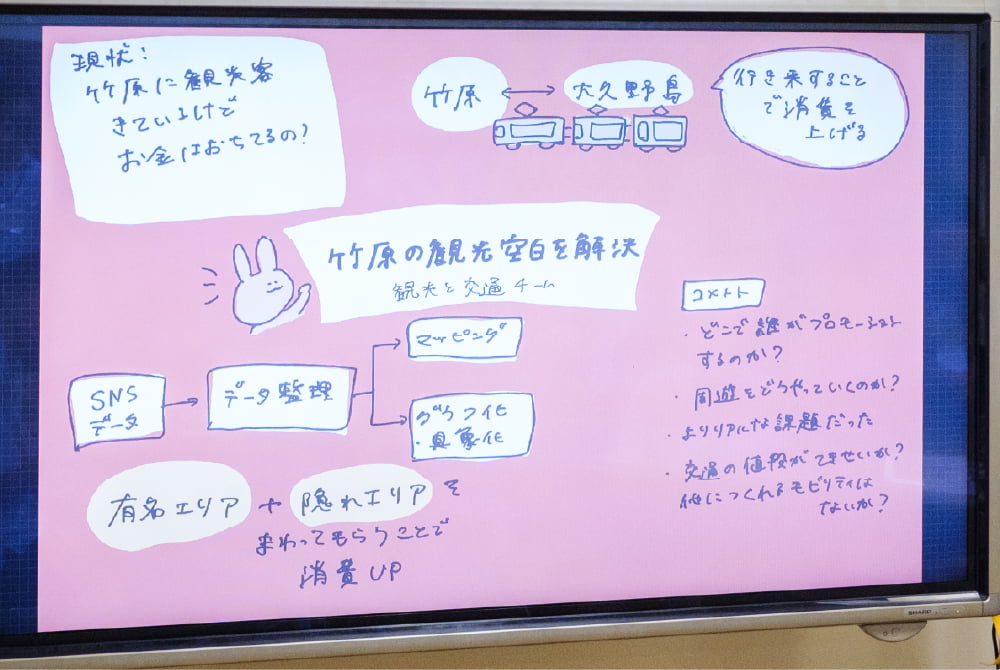 現状:
竹原に観光客
きているけど
お金はおちてるの?
竹原
大久野島
行き来すること
で消費を
上げる
竹原の観光空白を解決
観光と交通チーム
SNS
データ
データ整理
マッピング
グラフ化
・具象化
有名エリア + 隠れエリアを
まわってもらうことで
消費UP
コメント
・どこで誰がプロモーション
するのか?
・周遊をどうやっていくのか?
・よりリアルな課題だった
・交通の値段ができせいか?
他につくれるモビリティは
ないか?
SHARP